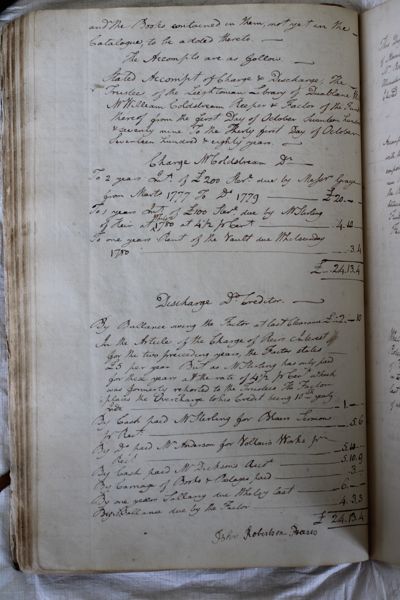 and the Books contained in them, not yet in the
Catalogue, to be added thereto.
The Accompts are as follow
Stated Accompt of Charge & Discharge, The
Trustees of the Leightonian Library of Dunblane
Mr William Coldstream Keeper & Factor of the Fund
thereof from the first Day of October Seventeen hundred
& seventy nine To the Thirty first Day of October
Seventeen hundred & eighty years.
Charge Mr Coldstream Dr
To 2 years Int. of £200 Ster. due by Major Graya
from Marts 1777 To Do 1779 £20
To 1 years Int. of £100 Ster. due by Mr Sterling
of Keir at 1780 at 4½ pr Cent 4.10
To one years Rent of the Vault due Whitsunday
1780 3.4
£ 24.13.4
Discharge Do Creditor.
By Ballance owing the Factor at last Clearance £2 10
In the Article of the Charge of Keirs Interest
for the two preceeding years, the Factor states
£5 per year But as Mr Sterling has only paid
for these years at the rate of 4½ pr Cent which
was formerly reported to the Trustees The Factor
places the Overcharge to his Credit being 10sh yearly
1
By Cash paid Mr Sterling for Blairs Sermons
pr Rect 5.6
By Do paid Mr Anderson for Voltairs Works pr
Rect 5.10
By Cash paid Mr Dicksons Acct 5.10.9
By Carriage of Books & Postages paid 3
By one years Sallary due Whitsy last 6
By Ballance due by the Factor 4.3.3
£ 24.13.4
John Robertson Praeses